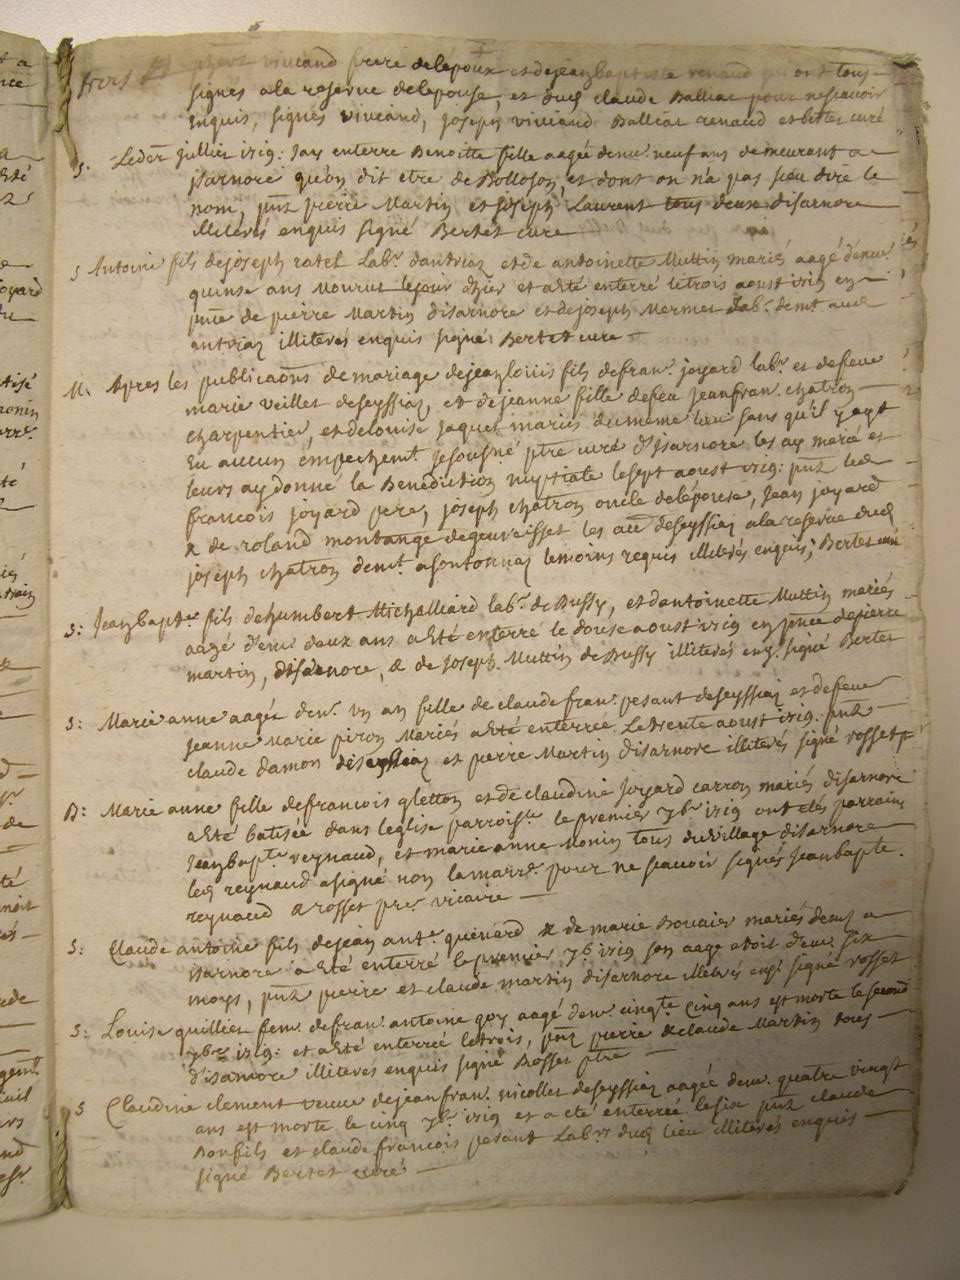 viviand frere delepoux et dejeanbaptiste renaud qui ont tous
signés ala reserve delepouse, et dud claude Balliat pour nescavoir
enquis, signés viviand, joseph viviand Balliat renaud et bertet curé
S. Leder juillet 1719: jay enterre Benoitte fille aagée denv neuf ans demeurant a
jsarnore qu'on dit etre de Bolloson, et dont on n'a pas sceu dire le
nom, pnt pierre Martin et joseph Laurent tous deux disarnore
illiterés enquis signé Bertet cure
S Antoine fils dejoseph ratel labr dantriaz et de antoinette Muttin mariés aagé d'env.
quinse ans mourut lejour d'hier et a été enterré letrois aoust 1719 en
pnce de pierre Martin disarnore et dejoseph Mermet Lab. demt aud
antriaz illiterés enquis signé: Bertet cure
M. Apres les publicaons de mariage dejeanlouis fils defran. joyard labr. et defeue
marie veillet deseyssiaz, et dejeanne fille defeu jeanfran. chatron
charpentier, et delouise jaquet mariés dumeme lieu sans qu'il y ayt
Eu aucun empechemt. jesousné ptre curé d'Jsarnore les ay marié et
leurs ay donné la Benediction nuptiale lesept aoust 1719: pnt led
francois joyard pere, joseph chatron oncle delépouse, jean joyard
& de roland montange degeuvrisset les au deseyssiaz ala reserve dud
joseph chatron demt. asontonnaz temoins requis illiterés enquis, Bertet curé
S: Jeanbapte fils dehumbert Michalliard labr de Bussy, et dantoinette Muttin mariés
aagé d'env deux ans a été enterré le douse aoust 1719 en pnce depierre
martin, disarnore, & de joseph Muttin de Bussy illiterés enq. signé Bertet
S: Marie anne aagée denv. un an fille de claude fran. pesant deseyssiaz et defeue
jeanne Marie piron Mariés a été enterrée Letrente aoust 1719. pnt
claude damon deseyssiaz et pierre Martin disarnore illiterés signé rosset p
B: Marie anne fille defrancois gletton et de claudine Joyard carron mariés disarnore
a été batisée dans leglise parroisle le premier 7bre 1719 ont étés parrain
Jeanbapte reynaud, et marie anne Monin tous duvillage disarnore
led reynaud asigné non lamarre. pour ne scavoir signés Jeanbapte
reynaud & rosset pre. vicaire
S: Claude antoine fils dejean ante quenard & de marie Bouvier mariés demt a
jsarnore a été enterré lepremier 7b 1719 son aage etoit d'env. six
moys, pnt pierre et claude martin disarnore illiterés enqs signé rosset
S: Louise quillier fem. defran. antoine goy aagé denv. cinqte cinq ans est morte le second
7bre 1719: et a été enterreé letrois, pnt pierre & claude Martin tous
d'isarnore illiterés enquis signé Rosset ptre
S Claudine clement veuve dejeanfran. nicollet deseyssiaz aagée denv. quatre vingt
ans est morte le cinq 7br. 1719 et a eté enterreé lesix pnt claude
Bonfils et claude francois pesant Labrs dud lieu illiterés enquis
signé Bertet curé